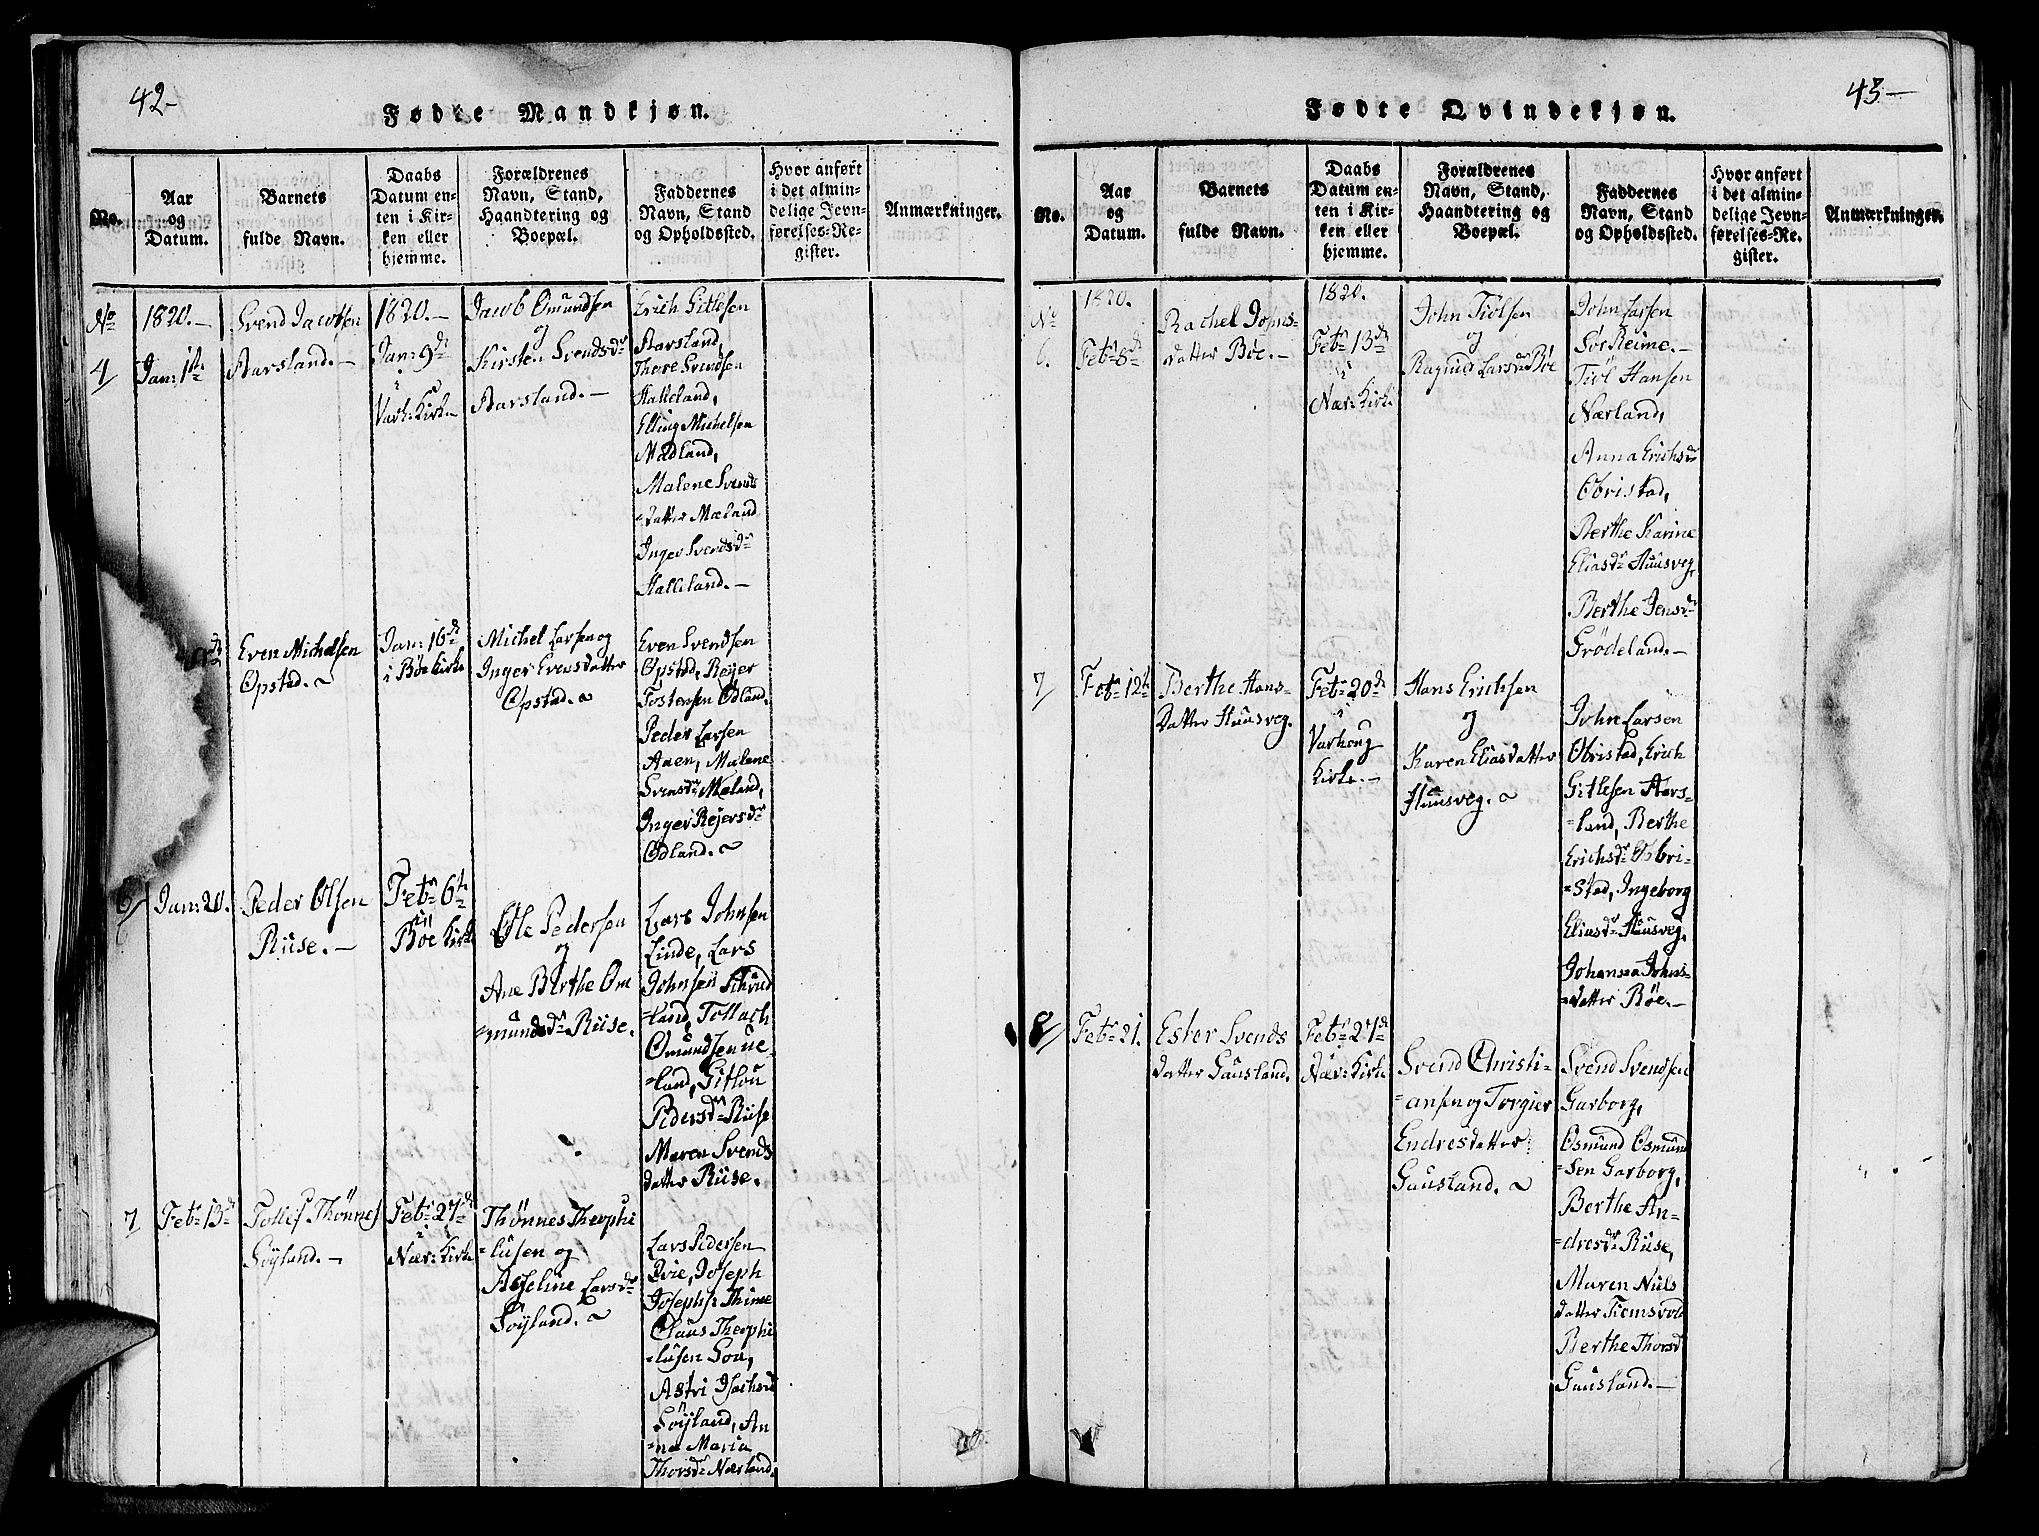 42-
Fødte Mandkjøn.
No.
Aar
og
Datum.
Barnets
fulde Navn.
Daabs
Datum en-
ten i Kir-
ken eller
hjemme.
Forældrenes
Navn, Stand,
Haandtering og
Boepæl.
Faddernes
Navn, Stand
og Opholdssted.
Hvor anført
i det almin-
delige Jevn-
førelses-Re-
gister.
Anmærkninger.
No
4
1820.-
Jan: 1te
Svend Jacobsen
Aarsland.-
1820.-
Jan: 9de
i
Varh: Kirk.-
Jacob Omundsen
og
Kirsten Svendsdr
Aarsland.-
Erich Gitlesen
Aarsland,
Thore Svendsen
Halleland,
Elling Michelsen
Madland,
Malene Svends
=datter Mæland
Inger Svendsdr
Halleland.-
Even Michelsen
Opstad.
Jan: 16de
i Bøe Kirke
Michel Larsen og
Inger Evensdatter
Opstad.
Even Svendsen
Opstad, Rejer
Tostensen Ødland.
Peder Larsen
Aaen, Malene
Svensdr Mæland,
Inger Rejersdr
Ødland.
6
Jan: 20.
Peder Olsen
Riise.-
Febr: 6te
i
Bøe Kirk
Ole Pedersen
og
Ane Birthe Om
=mundsdr Riise.
Lars Johnsen
Linde, Lars
Johnsen
=land, Tollach
Omundsen ue-
=land, Gitlou
Pedersdr Riise
Maren Svends
datter Riise.
7
Febr: 13de
Tollef Thønnes
Søyland.-
Febr: 27de
i
Nær: Kirk
Thønnes Theophi
=lusen og
Asseline Larsdr
Søyland.
Lars Pedersen
Qvie, Joseph
Josephs: Thime
Claus Theophi
=lusen Goa,
Astri Isachsd
Søyland, An
=na Maria
Thorsdr Nærland.
43-
Fødte Qvindekjøn.
No.
Aar
og
Datum.
Barnets
fulde Navn.
Daabs
Datum en-
ten i Kir-
ken eller
hjemme.
Forældrenes
Navn, Stand,
Haandtering og
Boepæl.
Faddernes
Navn, Stand
og Opholdssted.
Hvor anført
i det almin-
delige Jevn-
førelses-Re-
gister.
Anmærkninger.
No
6.
1820.
Febr: 8de
Rachel Johns-
datter Bøe.-
1820.
Febr: 13de
i
Nær: Kirk.
John Tiølsen
og
Ragnild Larsdr Bøe
John Larsen
Sør Reime.-
Tiøl Hansen
Nærland,
Anna Erichsdr
Obristad,
Berthe Karine
Eliasdr Huusveg,
Berthe Jensdr
Grødeland.-
7
Febr: 12te
Berthe Hans-
datter Huusveg.
Febr: 20de
i
Varhoug
Kirke.-
Hans Erichsen
og
Karen Eliasdatter
Huusveg.
John Larsen
Obristad, Erich
Gitlesen Aars-
=land, Berthe
Erichsdr Obri-
=stad, Ingeborg
Eliasdr Huusveg,
Johanna Johns-
=datter Bøe.-
8
Febr: 21.
Ester Svends
datter Gausland.
Febr: 27de
Nær: Kirk
Svend Christi-
=ansen og Torgier
Endresdatter
Gausland.
Svend Svendsen
Garborg,
Osmund Osmund
=sen Garborg,
Berthe An-
=dresdr Riise,
Maren Niels
datter Tiemsvold
Berthe Thorsd
Gausland.-